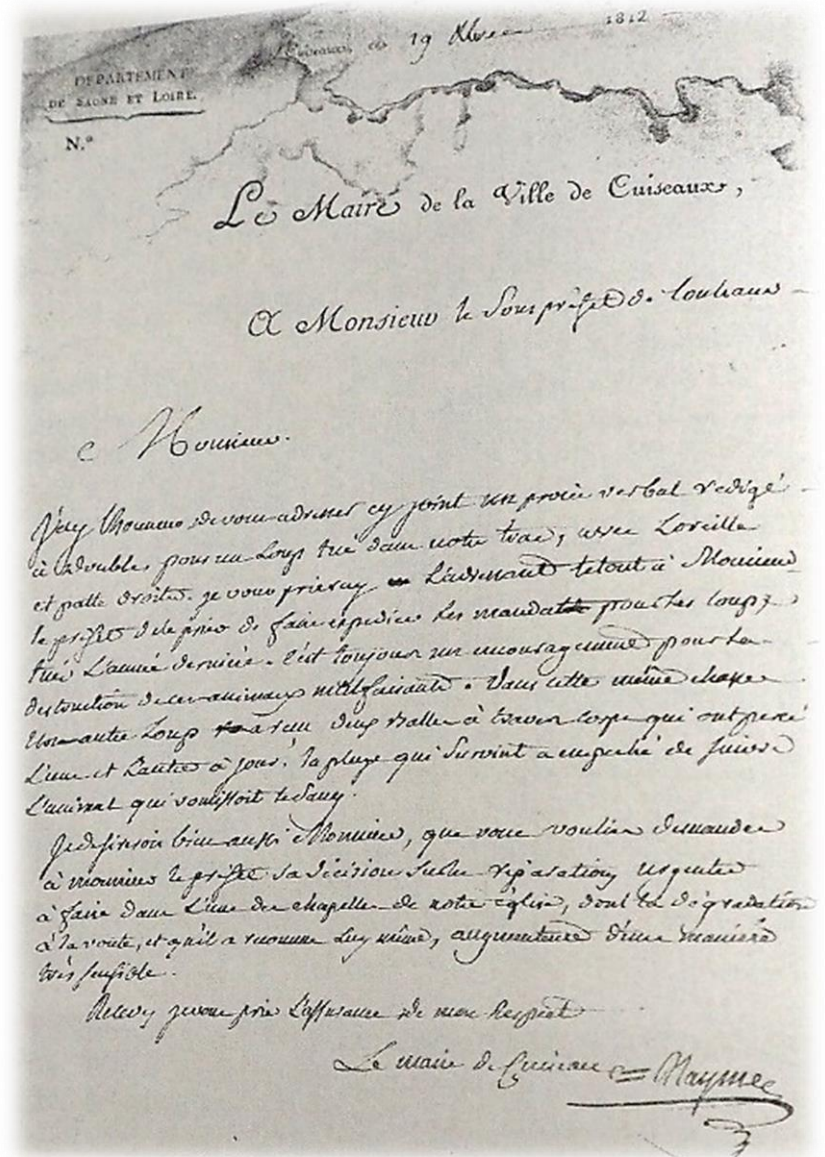 Cuiseaux ce 19 Xbre 1812
DEPARTEMENT
DE SAONE ET LOIRE.
N.°
Le Maire de la Ville de Cuiseaux,
A Monsieur le Sous préfet de Louhans
Monsieur.
J'ay l'honneur de vous adresser cy joint un procès verbal redigé
à double, pour un Loup tué dans notre trac, avec Loreille
et patte droite. je vous prieray L'adressant le tout à Monsieur
le préfet de le prier de faire expedier Les mandats pour Les loups
tués L'année dernière. C'est toujours un encouragement pour La
destruction de ces animaux malfaisants. Dans cette même chasse
Un autre Loup a reçu deux Balles à travers corps qui ont percé
L'une et L'autre à jour. la pluye qui survint a empeché de suivre
L'animal qui vomissoit le Sang.
Je desirerois bien aussi Monsieur, que vous voulies demander
à monsieur le préfet sa décision sur les réparations urgentes
à faire dans L'une des chapelles de notre église, dont la dégradation
à la voute, et qu'il a reconnue Luy même, augmente d'une manière
très sensible.
Recevez je vous prie L'assurance de mon Respect
Le maire de Cuiseaux = Maymee